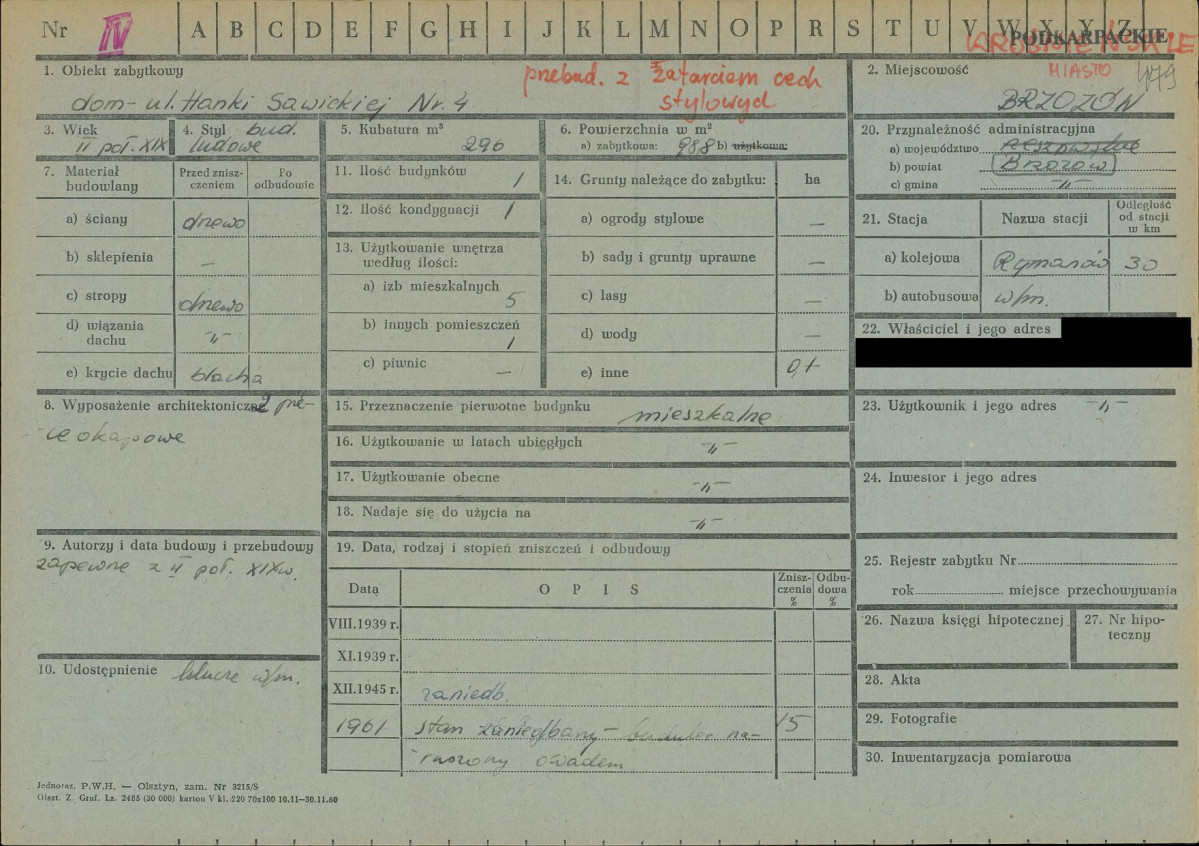 Nr IV A B C D E F G H I J K L M N O P R S T U V W X Y Z
PODKARPACKIE
MIASTO 479
przebud. z zatarciem cech
stylowych
1. Obiekt zabytkowy
dom - ul. Hanki Sawickiej Nr. 4
2. Miejscowość
BRZOZÓW
3. Wiek
II poł. XIX
4. Styl bud.
ludowe
5. Kubatura m³
296
6. Powierzchnia w m²
a) zabytkowa: 98,8 b) użytkowa:
20. Przynależność administracyjna
a) województwo rzeszowskie
b) powiat Brzozów
c) gmina -„-
7. Materiał budowlany
Przed zniszczeniem
Po odbudowie
a) ściany drzewo
b) sklepienia —
c) stropy drzewo
d) wiązania dachu -„-
e) krycie dachu blacha
11. Ilość budynków 1
12. Ilość kondygnacji 1
13. Użytkowanie wnętrza
według ilości:
a) izb mieszkalnych 5
b) innych pomieszczeń 1
c) piwnic —
14. Grunty należące do zabytku: ha
a) ogrody stylowe —
b) sady i grunty uprawne —
c) lasy —
d) wody —
e) inne
21. Stacja Nazwa stacji Odległość od stacji w km
a) kolejowa Rymanów 30
b) autobusowa w/m.
22. Właściciel i jego adres
8. Wyposażenie architektoniczne
okapowe
15. Przeznaczenie pierwotne budynku mieszkalne
16. Użytkowanie w latach ubiegłych -„-
17. Użytkowanie obecne -„-
18. Nadaje się do użycia na -„-
23. Użytkownik i jego adres -„-
24. Inwestor i jego adres
9. Autorzy i data budowy i przebudowy
zapewne z II poł. XIX w.
19. Data, rodzaj i stopień zniszczeń i odbudowy
Data O P I S Zniszczenia % Odbudowa %
VIII.1939 r.
XI.1939 r.
XII.1945 r. zaniedb.
1961 stan zaniedbany - budulec na-
ruszony owadem 15
25. Rejestr zabytku Nr
rok miejsce przechowywania
26. Nazwa księgi hipotecznej
27. Nr hipoteczny
10. Udostępnienie klucze w/m.
28. Akta
29. Fotografie
30. Inwentaryzacja pomiarowa
Jednoraz. P.W.H. — Olsztyn, zam. Nr 3215/S
Olszt. Z. Graf. Lz. 2405 (30 000) karton V kl. 220 70x100 10.11—30.11.60